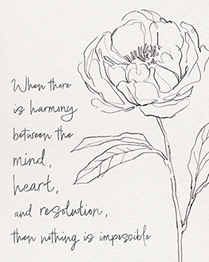 When there
is harmony
between the
mind,
heart,
and resolution,
then nothing is impossible